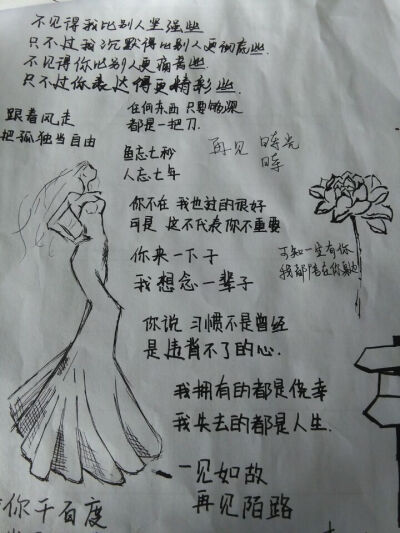 不见得我比别人坚强些
只不过我沉默得比别人更彻底些.
不见得你比别人更痛苦些
只不过你表达得更精彩些.
跟着风走
把孤独当自由
任何东西 只要够深
都是一把刀.
再见 时光
时
鱼忘七秒
人忘七年
你不在 我也过的很好
可是 这不代表你不重要
你来一下子
我想念一辈子
可知一生有你
我都陪在你身边
你说 习惯不是曾经
是违背不了的心.
我拥有的都是侥幸
我失去的都是人生.
一见如故
再见陌路
你千百度